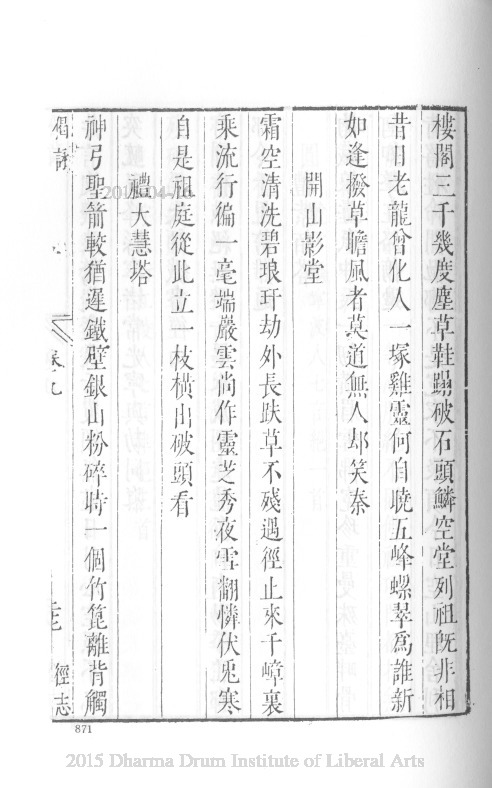 樓閣三千幾度塵草鞋蹋破石頭鱗空堂列祖既非相
昔日老龍曾化人一塚雞靈何自曉五峰螺翠爲誰新
如逢撥草瞻風者莫道無人却笑秦
開山影堂
霜空清洗碧琅玕劫外長趺草不殘遇徑止來千嶂裏
乘流行徧一毫端嚴雲尚作靈芝秀夜雪翻憐伏兎寒
自是祖庭從此立一枝橫出破頭看
禮大慧塔
神弓聖箭較猶遲鐵壁銀山粉碎時一個竹篦離背觸
卷九 徑志
871
2015 Dharma Drum Institute of Liberal Arts